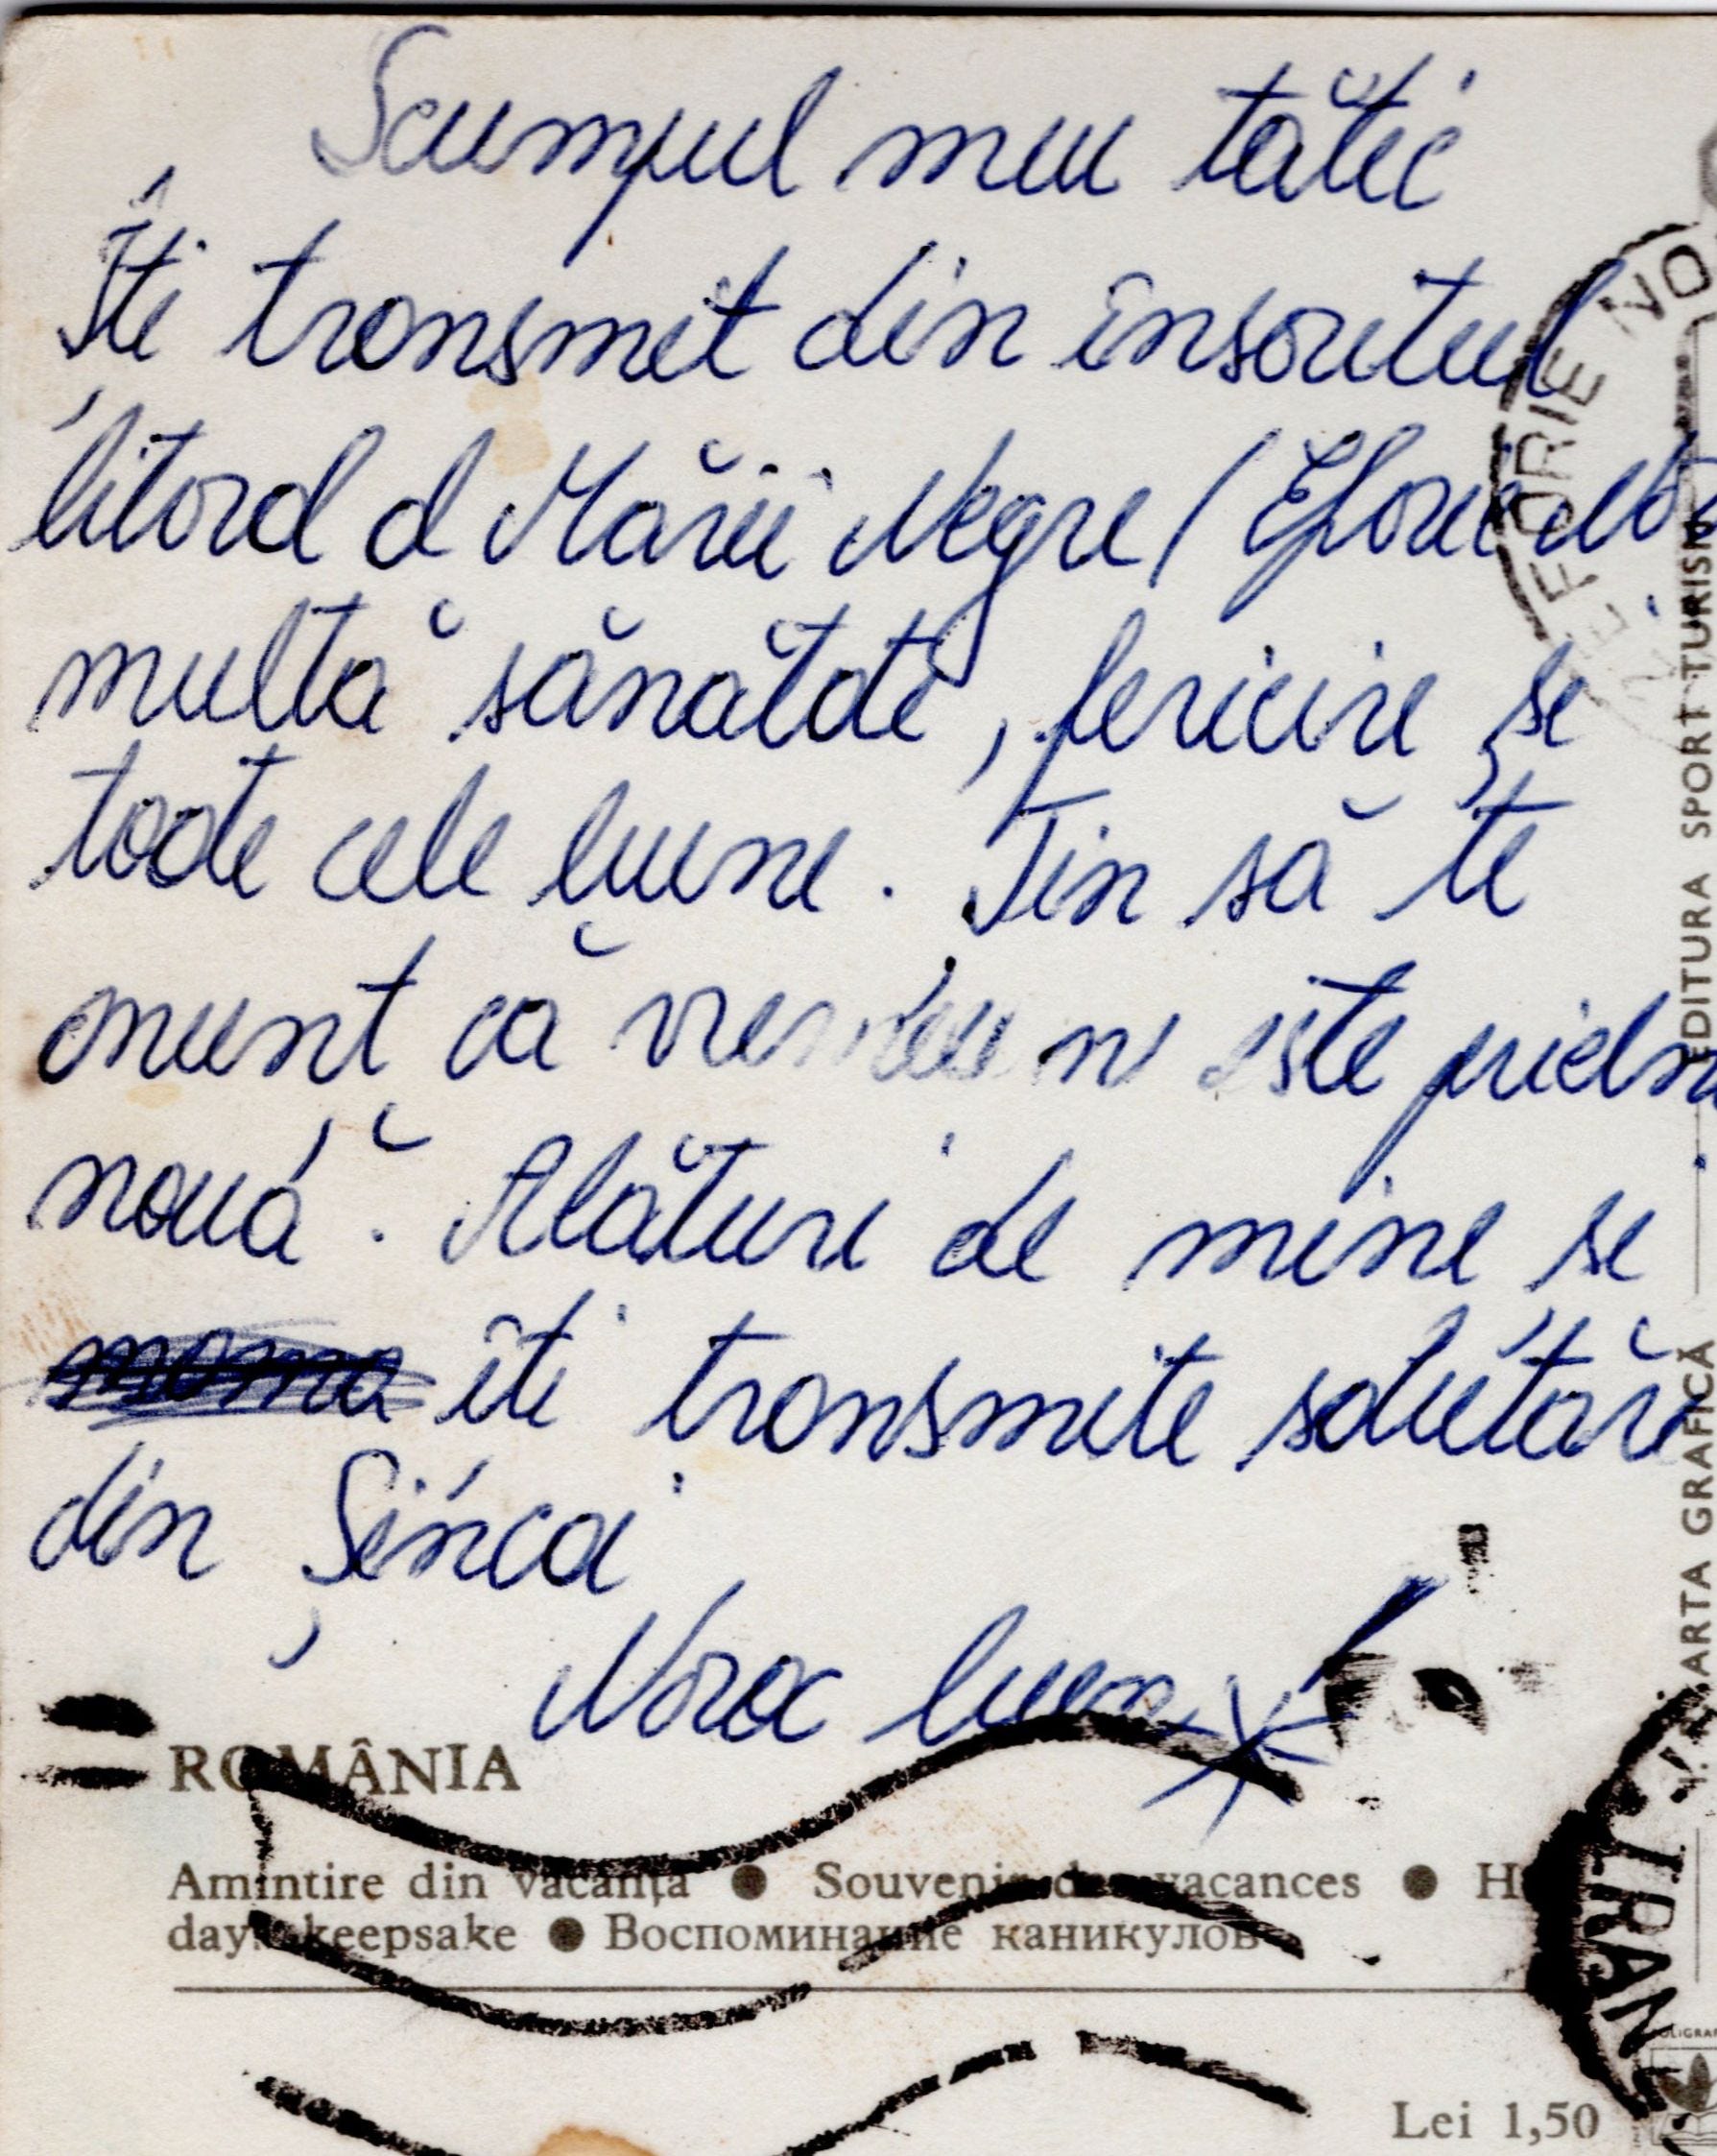 Scumpul meu tătic
Îți transmit din însoritul
litoral al Mării Negre (Eforie No
multă sănătate, fericire și
toate cele bune. Țin să te
anunț că vremea ne este prielni
nouă. Alături de mine se
mama îți transmite salutări
din Șincai
Noroc bun
ROMÂNIA
Amintire din vacanța ● Souvenir des vacances ● H
day keepsake ● Воспоминание каникулов
Lei 1,50
EFORIE NO
EDITURA SPORT TURISM
I. P. ARTA GRAFICĂ
TRAN